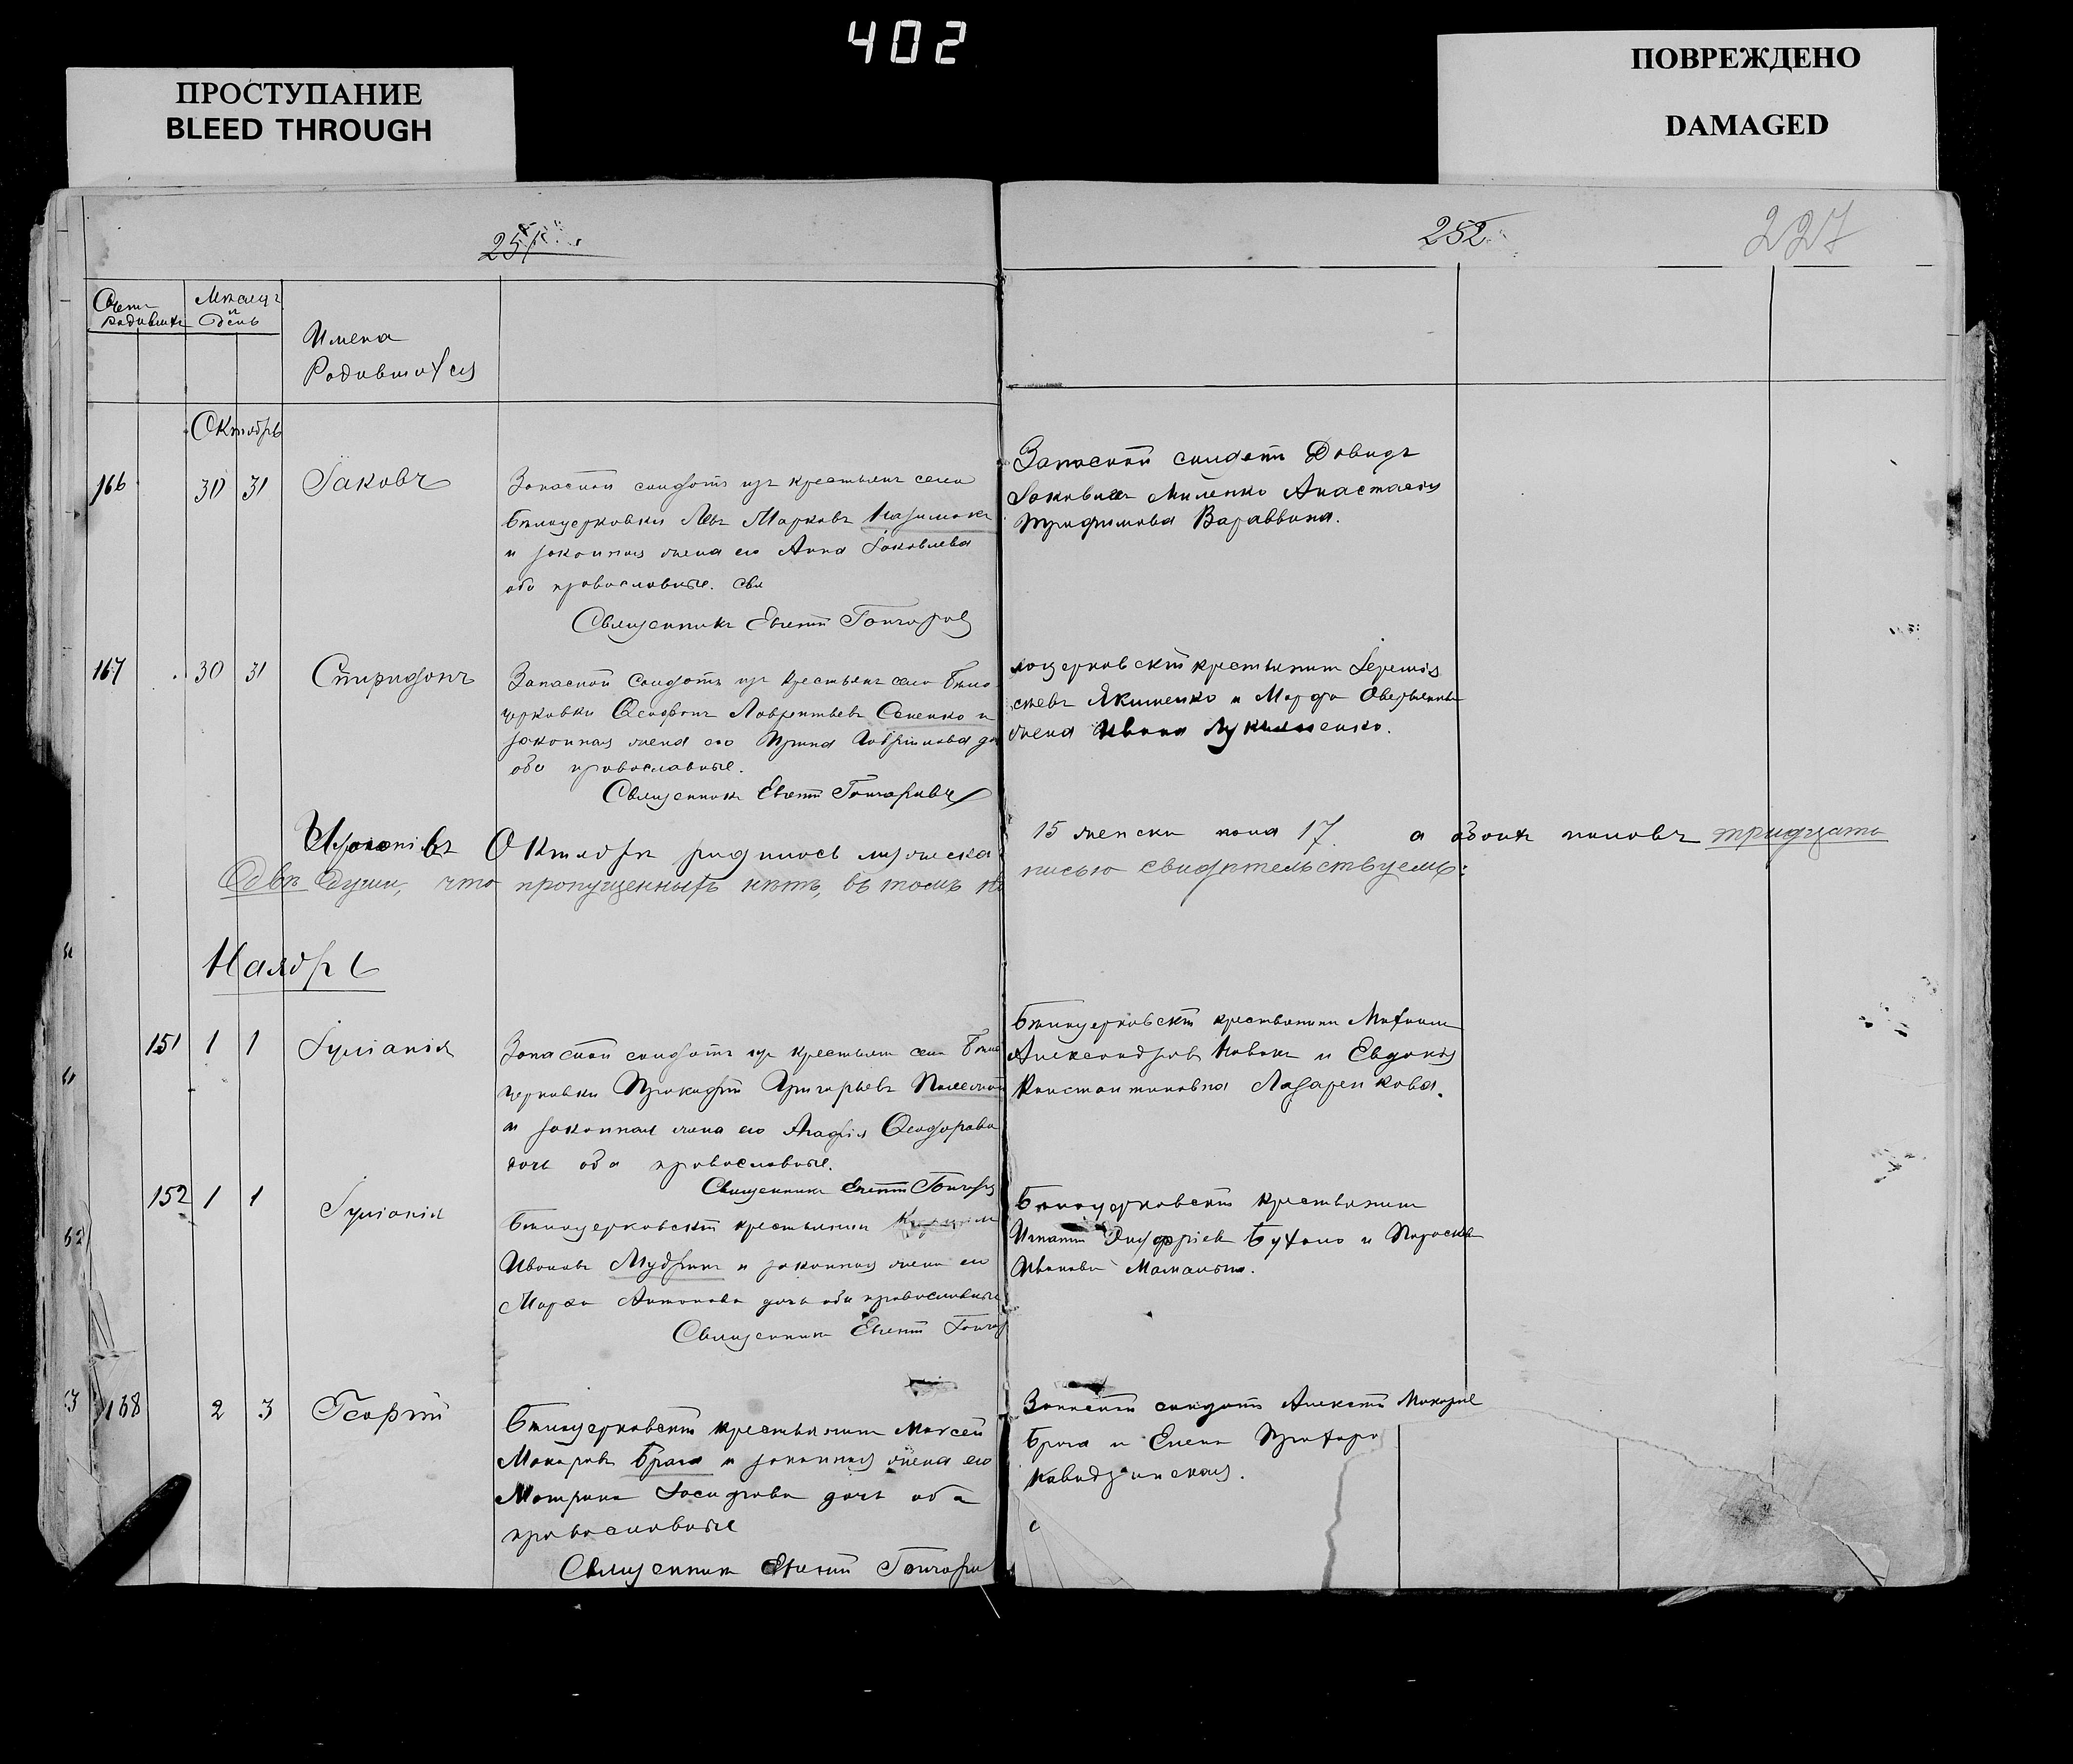 402
ПРОСТУПАНИЕ
BLEED THROUGH
ПОВРЕЖДЕНО
DAMAGED
251
252
227
Счетъ родившихся
Мѣсяцъ и день
Имена
Родившихся
Октябрь
166 30 31 Іаковъ
Запасный солдатъ изъ крестьянъ села
Бѣлоцерковки Левъ Марковъ
и законная жена его Анна Іаковлева
оба православные. Свя
Священникъ Евгеній Гончаровъ
Запасный солдатъ Давидъ
Іаковлевъ Миленко Анастасія
Трофимова Вараввина.
167 30 31 Спиридонъ
Запасный солдатъ изъ крестьянъ села Бѣло
церковки Лаврентьевъ Семенко и
законная жена его Ирина
оба православные.
Священникъ Евгеній Гончаровъ
лоцерковскій крестьянинъ Іеремія
Якименко и Марфа
жена Ивана
Октября родилось мужеска
15 женска пола 17. а обоихъ половъ тридцать
двѣ души, что пропущенныхъ нѣтъ, въ томъ
писью свидѣтельствуемъ:
Наябрь
151 1 1 Іуліанія
Запасный солдатъ изъ крестьянъ села Бѣло
церковки Прокофій Григорьевъ
и законная жена его Агафія Ѳеодорова
дочь оба православные.
Священникъ Евгеній Гончаровъ
Бѣлоцерковскій крестьянинъ Михаилъ
Александровъ Новакъ и Евдокія
Константиновна Лазаренкова.
152 1 1 Іуліанія
Бѣлоцерковскій крестьянинъ
Ивановъ Мудракъ и законная жена его
Марфа Антонова дочь оба православные
Священникъ Евгеній Гончар
Бѣлоцерковскій крестьянинъ
Игнатій Онуфріевъ Бухало и Параскева
Иванова
168 2 3 Георгій
Бѣлоцерковскій крестьянинъ Моисей
Макаровъ Брага и законная жена его
Матрона дочь оба
православные
Священникъ Евгеній Гончаров
Запасный солдатъ Алексѣй Макаровъ
Брага и Елена